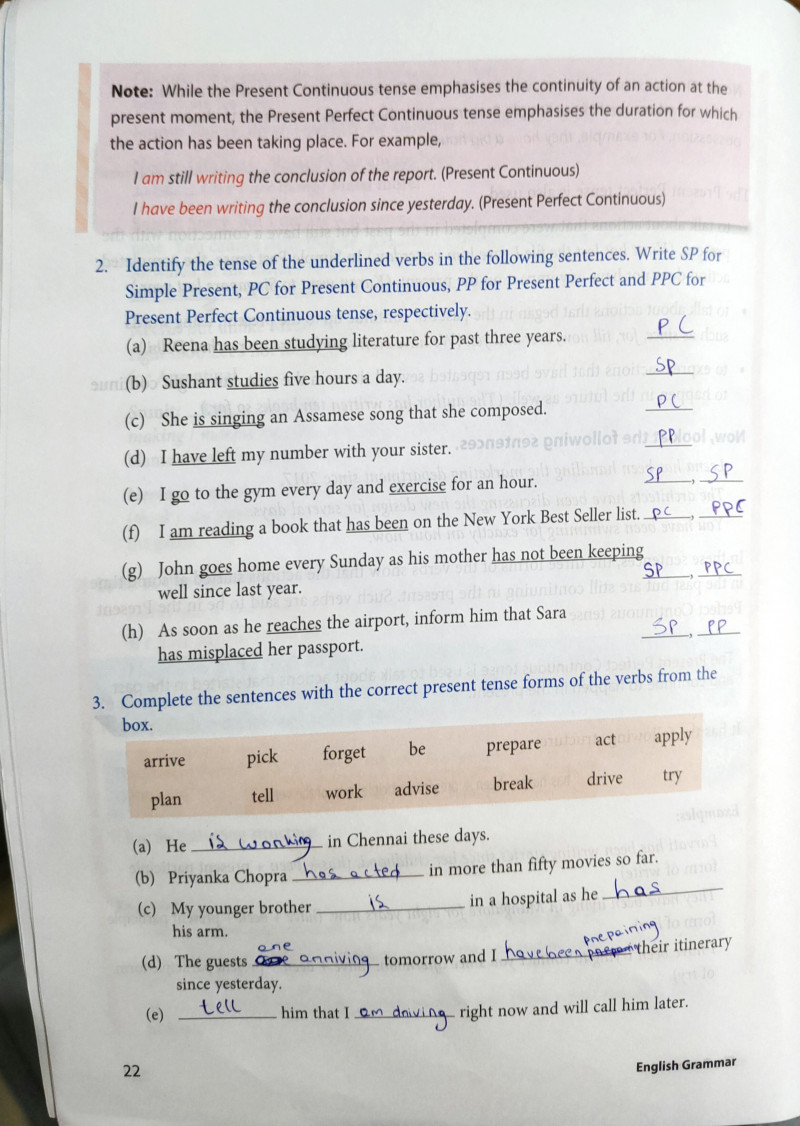 Note: While the Present Continuous tense emphasises the continuity of an action at the
present moment, the Present Perfect Continuous tense emphasises the duration for which
the action has been taking place. For example,
I am still writing the conclusion of the report. (Present Continuous)
I have been writing the conclusion since yesterday. (Present Perfect Continuous)
2. Identify the tense of the underlined verbs in the following sentences. Write SP for
Simple Present, PC for Present Continuous, PP for Present Perfect and PPC for
Present Perfect Continuous tense, respectively.
(a) Reena has been studying literature for past three years. PC
(b) Sushant studies five hours a day. SP
(c) She is singing an Assamese song that she composed. PC
(d) I have left my number with your sister. PP
(e) I go to the gym every day and exercise for an hour. SP, SP
(f) I am reading a book that has been on the New York Best Seller list. PC, PPC
(g) John goes home every Sunday as his mother has not been keeping
well since last year. SP, PPC
(h) As soon as he reaches the airport, inform him that Sara
has misplaced her passport. SP, PP
3. Complete the sentences with the correct present tense forms of the verbs from the
box.
arrive pick forget be prepare act apply
plan tell work advise break drive try
(a) He is working in Chennai these days.
(b) Priyanka Chopra has acted in more than fifty movies so far.
(c) My younger brother is in a hospital as he has
his arm.
(d) The guests are arriving tomorrow and I have been prepairing their itinerary
since yesterday.
(e) tell him that I am driving right now and will call him later.
22
English Grammar